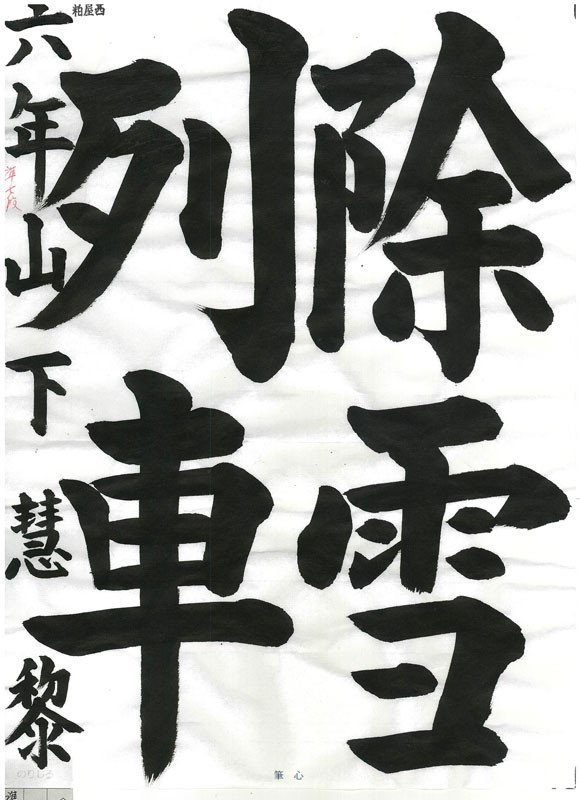 除雪
列車
六年山下慧黎
準七段
西屋粕
心筆